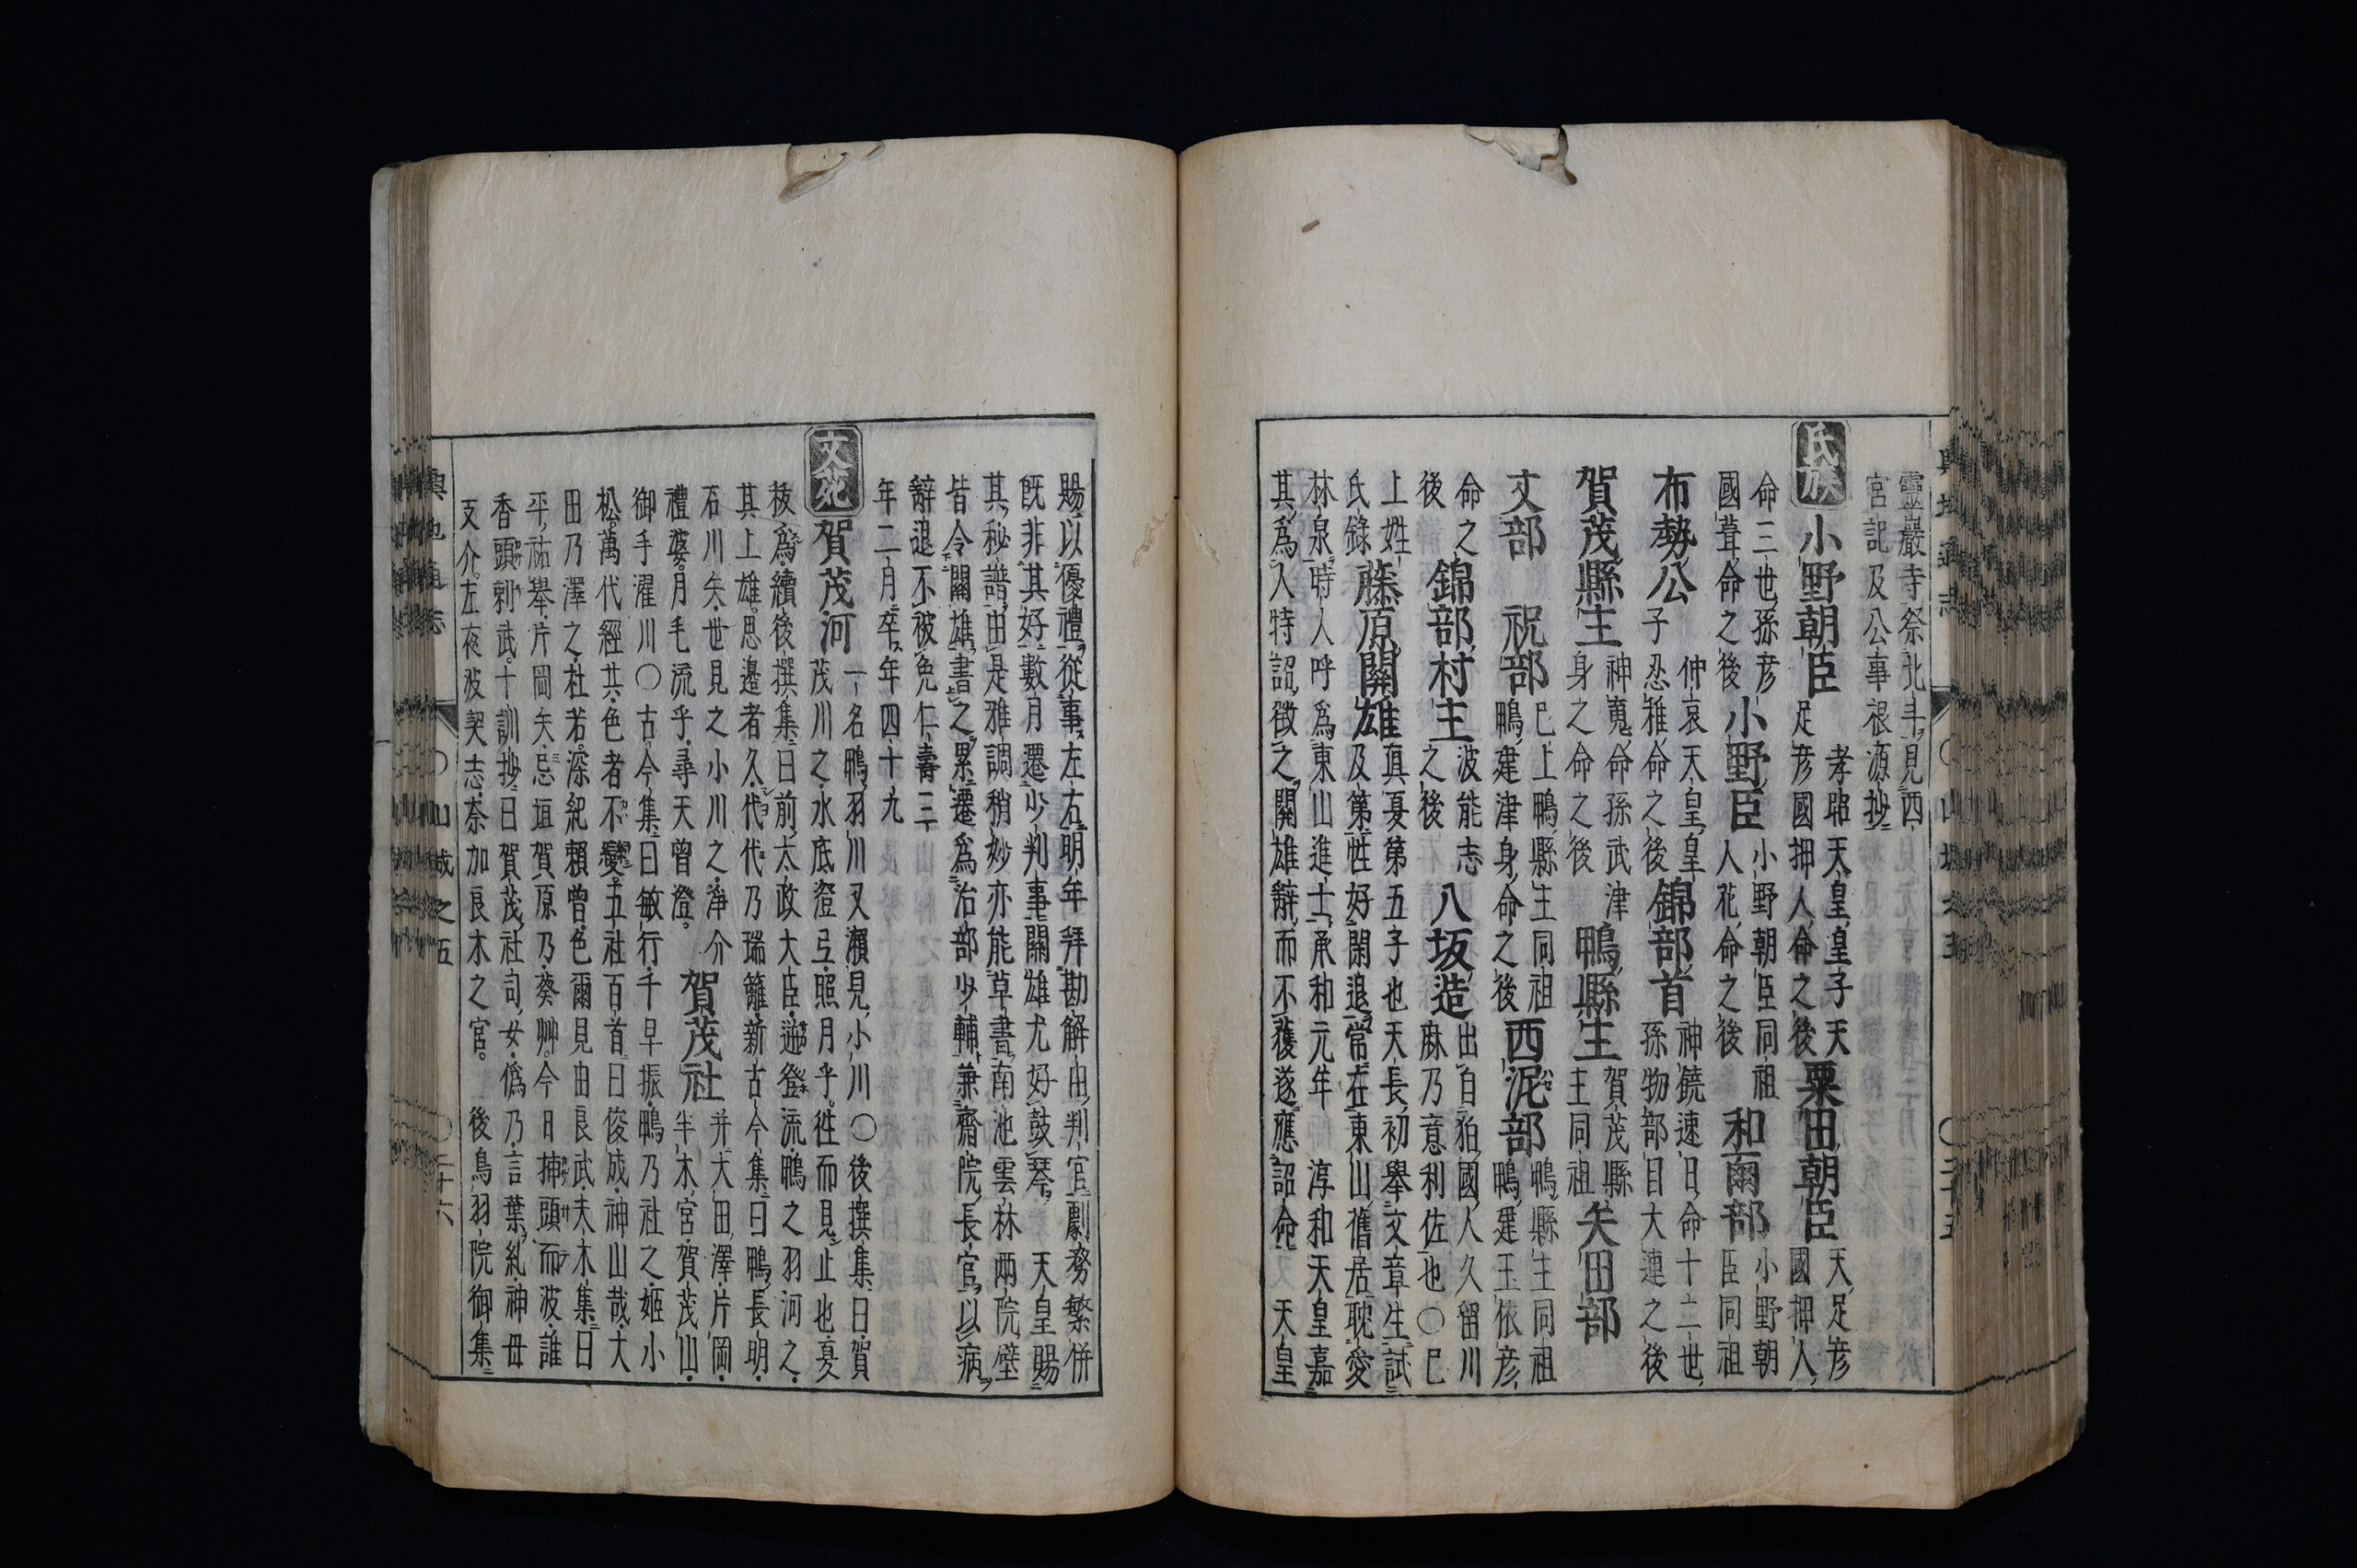 靈巖寺祭北斗見西
宮記及公事根源抄
氏族 小野朝臣 孝昭天皇皇子天足彥國押人命之後 粟田朝臣 天足彥國押人
命三世孫彥國葺命之後 小野臣 小野朝臣同祖人花命之後 和爾部 小野朝臣同祖
布勢公 仲哀天皇皇子忍稚命之後 錦部首 神饒速日命十二世孫物部目大連之後
賀茂縣主 神䰟命孫武津身之命之後 鴨縣主 賀茂縣主同祖 矢田部
丈部 祝部 已上鴨縣主同祖鴨建津身命之後 西泥部 鴨縣主同祖鴨建玉依彥
命之後 錦部村主 波能志之後 八坂造 出自狛國人久留川麻乃意利佐也〇已
上姓氏錄 藤原關雄 真夏第五子也天長初舉文章生試及第性好閑退常在東山舊居耽愛
林泉時人呼爲東山進士承和元年 淳和天皇嘉
其爲人特詔徵之關雄辭而不獲遂應詔命 天皇
賜以優禮從事左右明年拜勘解由判官劇務繁併
既非其好數月遷少判事關雄尤好鼓琴 天皇賜
其秘譜由是雅調稍妙亦能草書南池雲林兩院壁
皆令關雄書之累遷爲治部少輔兼齋院長官以病
辭退不被免仁壽三
年二月卒年四十九
文苑 賀茂河 一名鴨羽川又瀨見小川〇後撰集曰賀
茂川之水底澄弖照月乎徃而見止也夏
秡爲續後撰集曰前太政大臣遊登流鴨之羽河之
其上雄思邉者久代代乃瑞籬新古今集曰鴨長明
石川矢世見之小川之淨介
禮婆月毛流乎尋天曾澄 賀茂社 并大田澤片岡半木宮賀茂山
御手濯川〇古今集曰敏行千早振鴨乃社之姬小
松萬代經共色者不變五社百首曰俊成神山哉大
田乃澤之杜若深紀賴曾色爾見由良武夫木集曰
平祐舉片岡矢忌垣賀原乃葵艸今日揷頭而波誰
香頭剌武十訓抄曰賀茂社司女僞乃言葉糺神毋
支介左夜波契志奈加良木之宮 後鳥羽院御集
輿地通志 〇山城之五 〇三十六